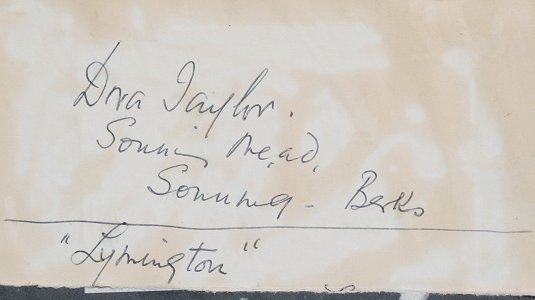 Dora Taylor.
Sonning Mead,
Sonning - Berks
"Lymington"